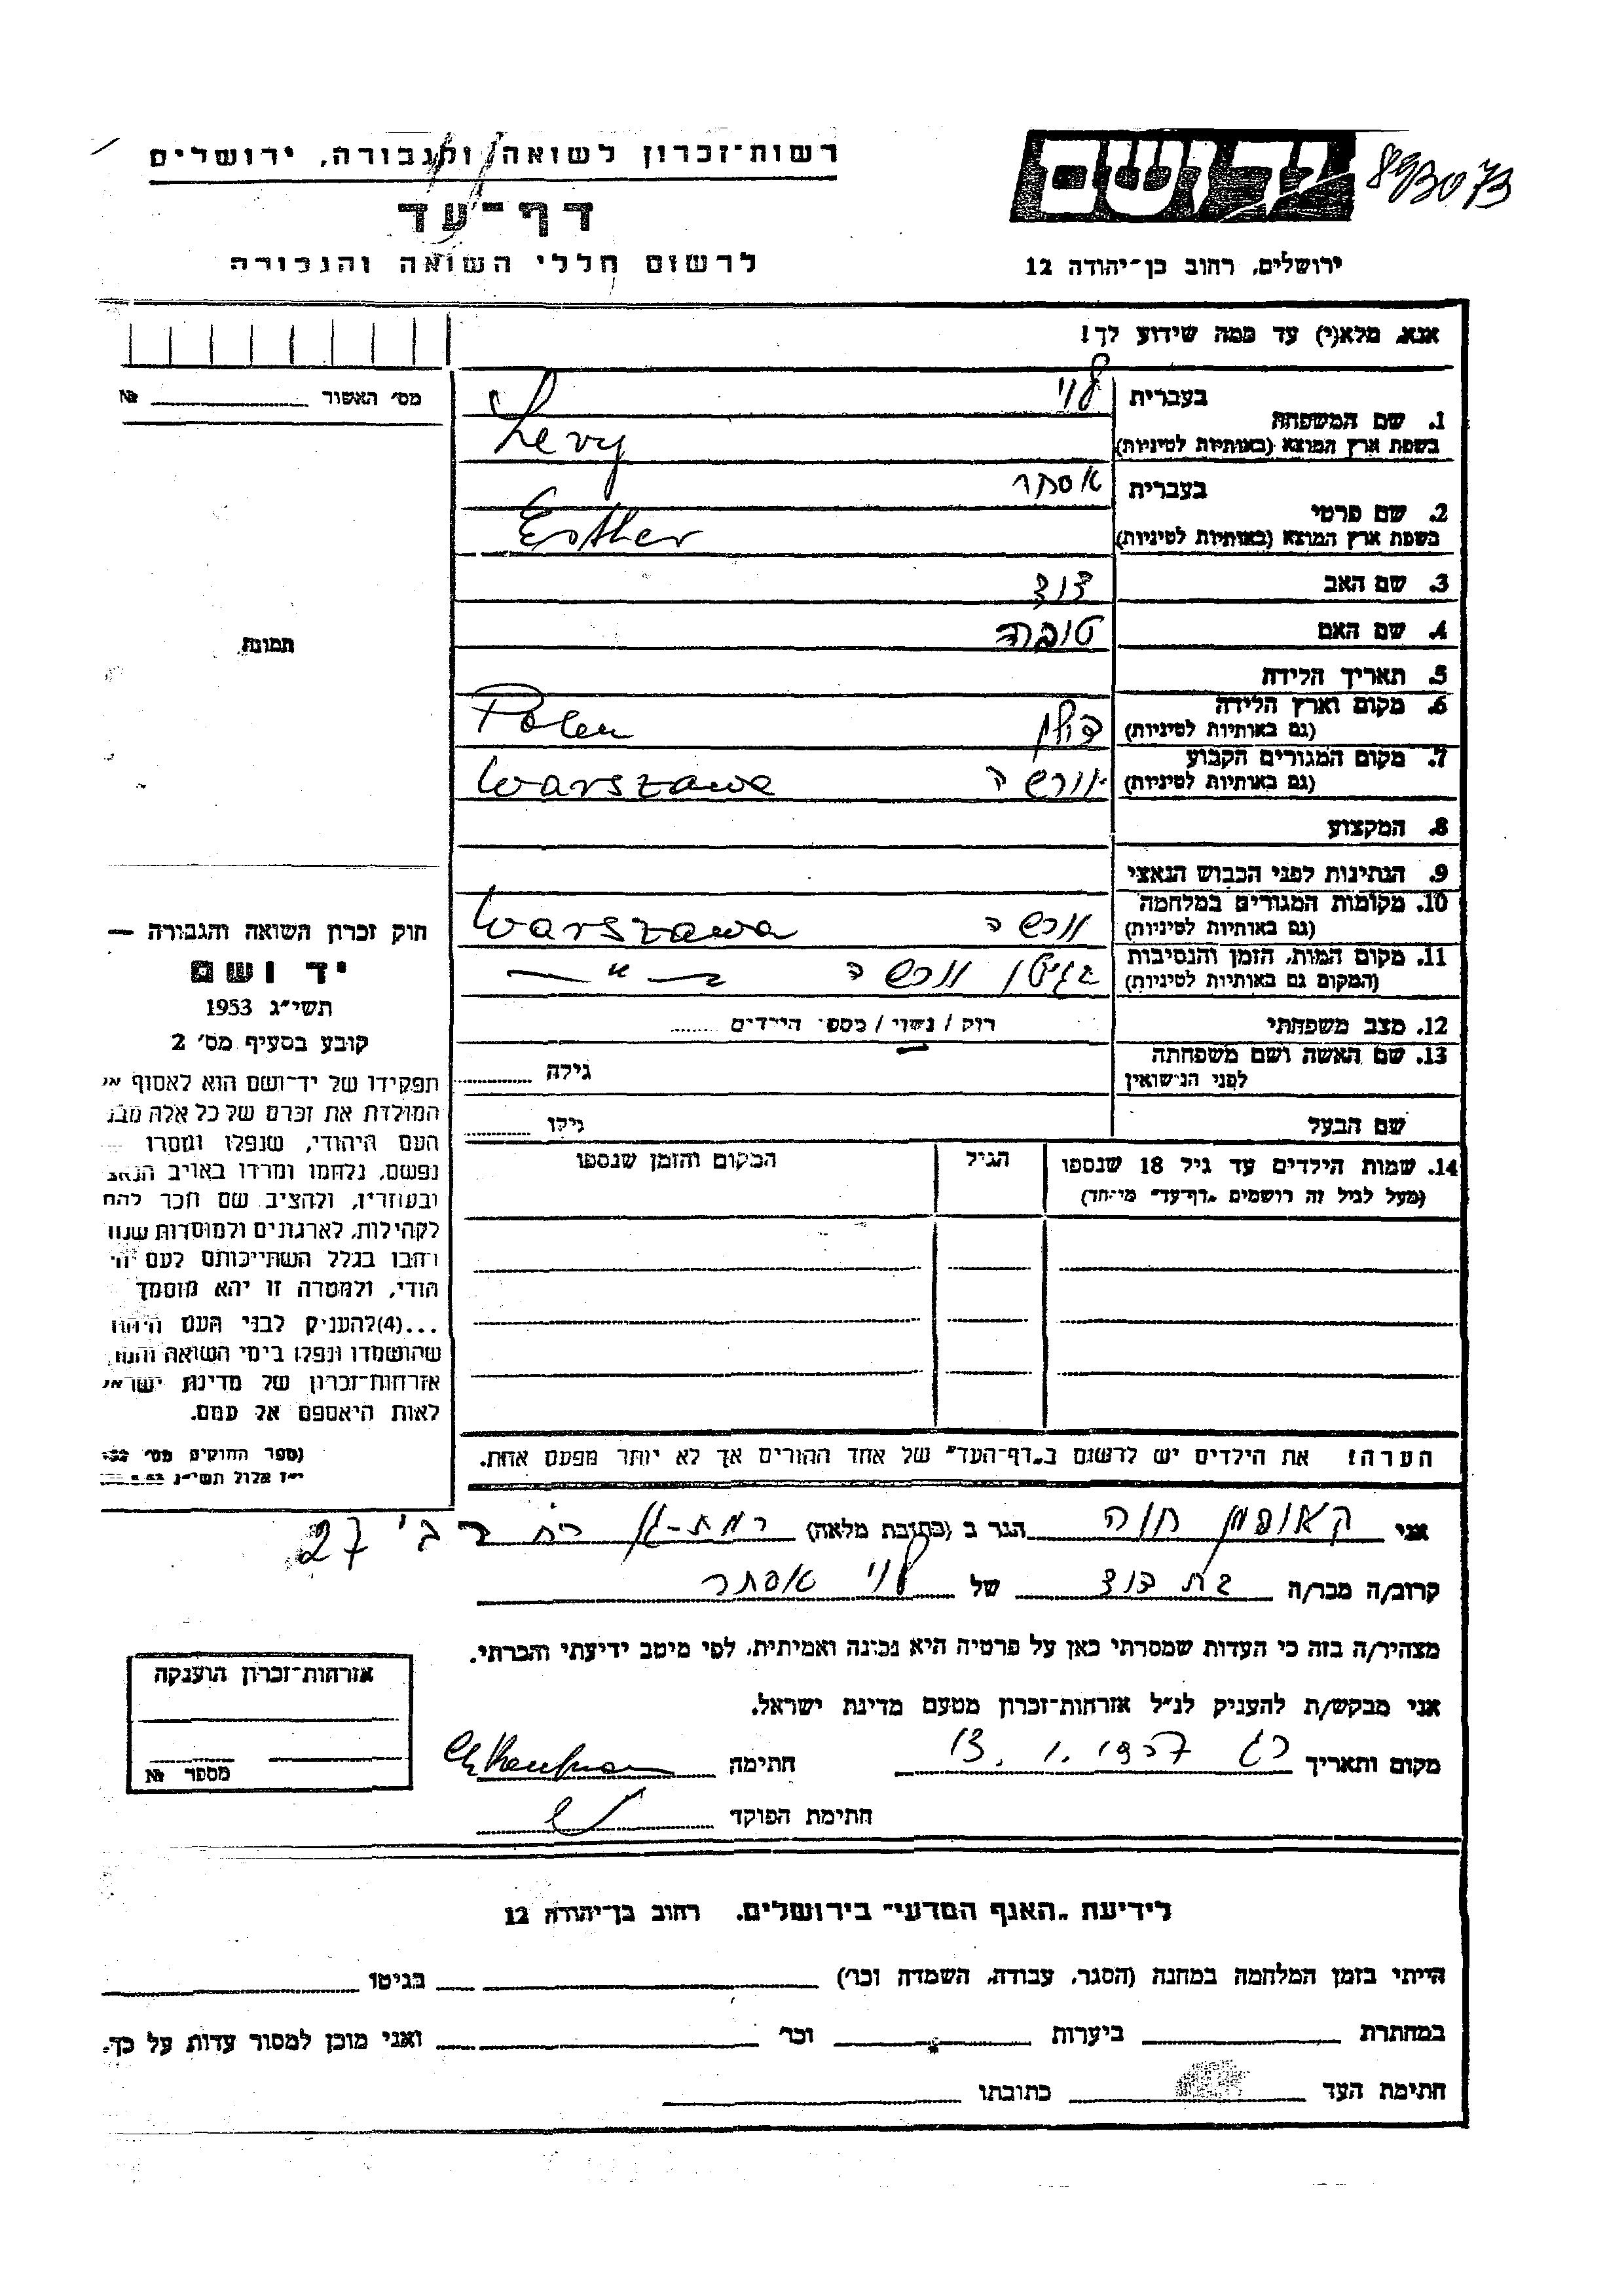 רשות־זכרון לשואה ולגבורה, ירושלים
יד ושם
893073
דף־עד
לרשום חללי השואה והגבורה
ירושלים, רחוב בן־יהודה 12
אנא, מלא(י) עד כמה שידוע לך!
מס' האשור № 
בעברית לוי
1. שם המשפחה
בשפת ארץ המוצא (באותיות לטיניות) Levy
בעברית אסתר
2. שם פרטי
בשפת ארץ המוצא (באותיות לטיניות) Esther
3. שם האב דוד
4. שם האם טובה
תמונה
5. תאריך הלידה
6. מקום וארץ הלידה
(גם באותיות לטיניות) פולין Polen
7. מקום המגורים הקבוע
(גם באותיות לטיניות) וורשה Warszawa
8. המקצוע
9. הנתינות לפני הכבוש הנאצי
10. מקומות המגורים במלחמה
(גם באותיות לטיניות) וורשה Warszawa
11. מקום המות, הזמן והנסיבות
(המקום גם באותיות לטיניות) בגיטו וורשה — " —
12. מצב משפחתי רוק / נשוי / מספר הילדים
13. שם האשה ושם משפחתה
לפני הנישואין גילה
שם הבעל גילו
14. שמות הילדים עד גיל 18 שנספו הגיל המקום והזמן שנספו
(מעל לגיל זה רושמים "דף־עד" מיוחד)
חוק זכרון השואה והגבורה —
יד ושם
תשי"ג 1953
קובע בסעיף מס' 2
תפקידו של יד־ושם הוא לאסוף אי
המולדת את זכרם של כל אלה מבנ
העם היהודי, שנפלו ומסרו
נפשם, נלחמו ומרדו באויב הנאצ
ובעוזריו, ולהציב שם וזכר להם
לקהילות, לארגונים ולמוסדות שנח
רחבו בגלל השתייכותם לעם הי
הודי, ולמטרה זו יהא מוסמך
...(4)להעניק לבני העם היהוד
שהושמדו ונפלו בימי השואה והגב
אזרחות־זכרון של מדינת ישראל
לאות היאספם אל עמם.
(ספר החוקים מס'
י"ז אלול תשי"ג
הערה! את הילדים יש לרשום ב"דף־העד" של אחד ההורים אך לא יותר מפעם אחת.
אני קאופמן חוה הגר ב (כתובת מלאה) רמת-גן רח 27
קרוב/ה מכר/ה בת דוד של לוי אסתר
מצהיר/ה בזה כי העדות שמסרתי כאן על פרטיה היא נכונה ואמיתית, לפי מיטב ידיעתי והכרתי.
אני מבקש/ת להעניק לנ"ל אזרחות־זכרון מטעם מדינת ישראל.
מקום ותאריך רג 13.1.1957 חתימה Ch Kaufman
חתימת הפוקד
אזרחות־זכרון הוענקה
מספר №
לידיעת "האגף המדעי" בירושלים, רחוב בן־יהודה 12
הייתי בזמן המלחמה במחנה (הסגר, עבודה, השמדה וכר') בגיטו
במחתרת ביערות וכר' ואני מוכן למסור עדות על כך.
חתימת העד כתובתו